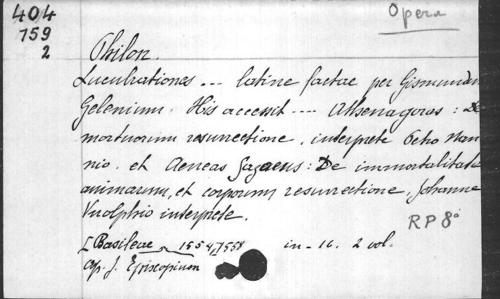 404
759
2
Opera
Philon
Lucubrationes ... latine factae per Gismundum
Gelenium. His accessit ... Athenagoras : De
mortuorum resurrectione, interprete Petro Nan-
nio, et Aeneas Gazaeus : De immortalitate
animarum, et corporum resurrectione, Johanne
Vuolphio interprete.
RP 8°
[Basileae 1554, 1558 in-16. 2 vol.
Ap. J. Episcopium